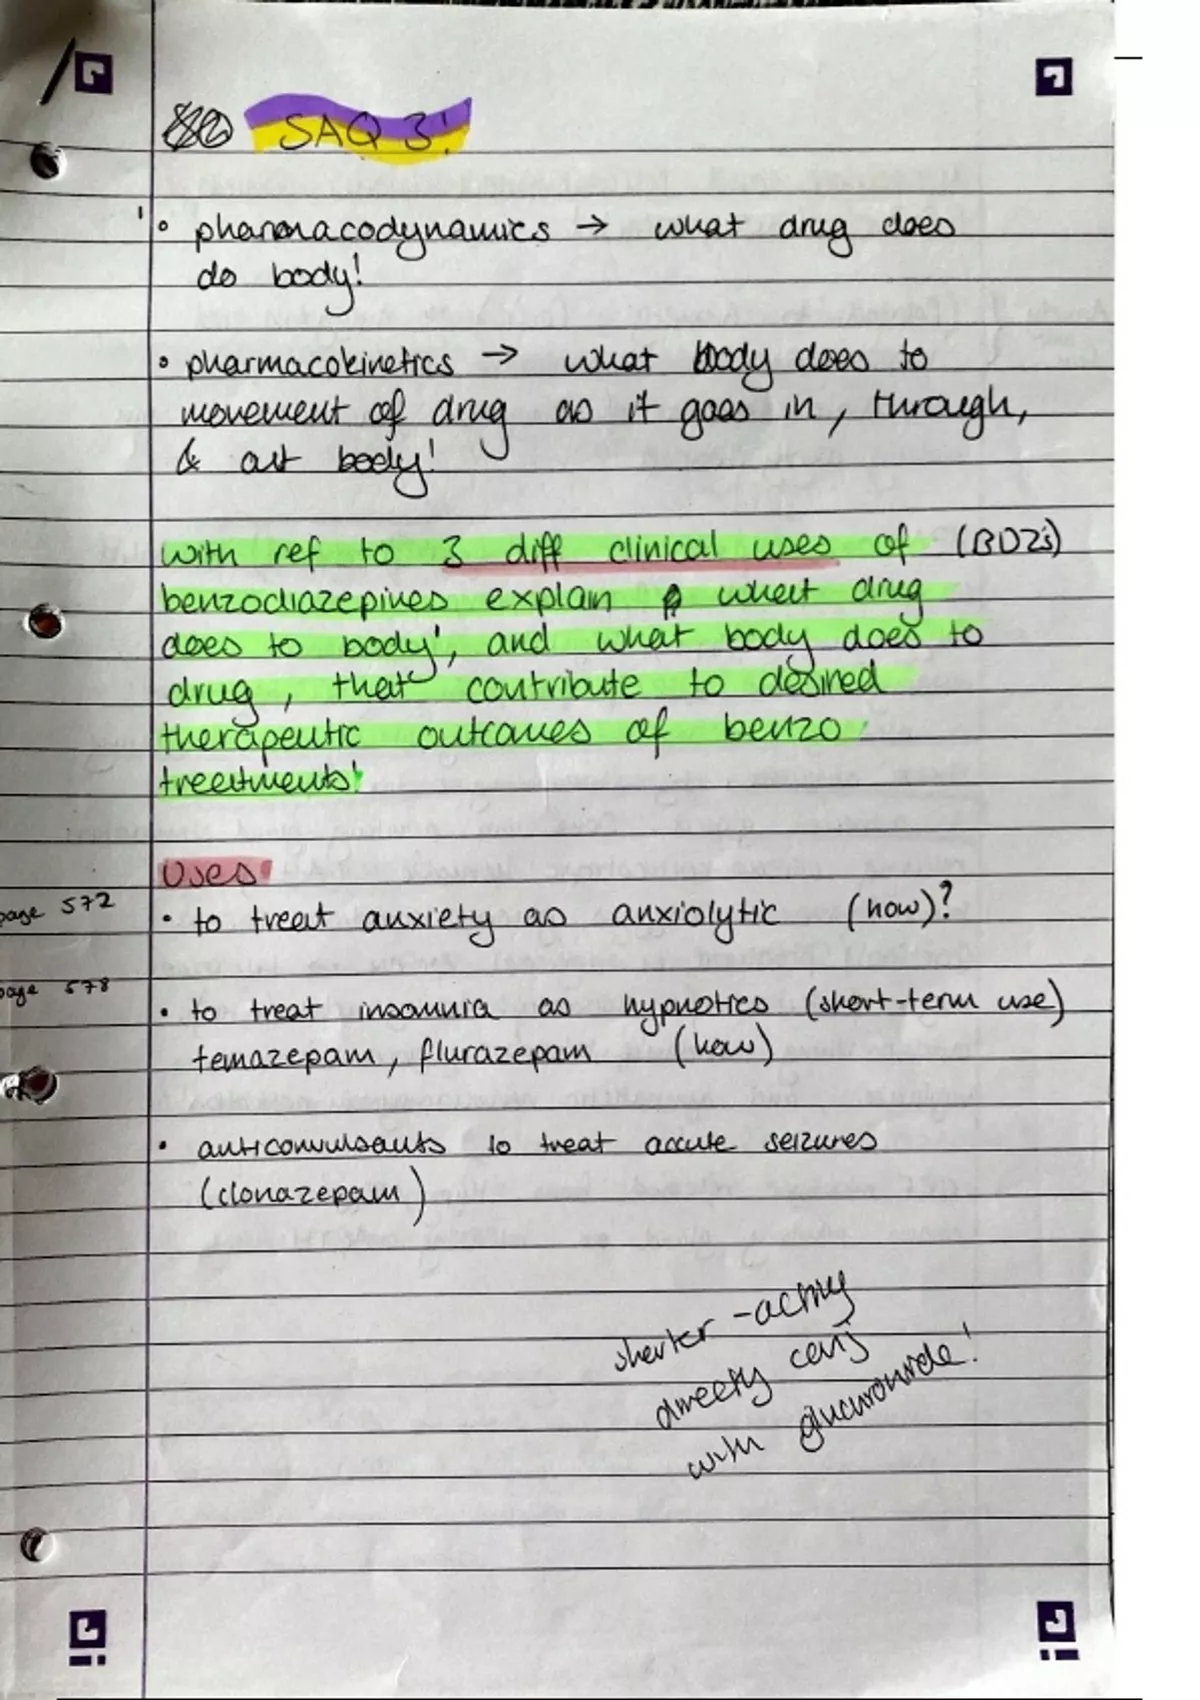 SAQ 3!
• pharmacodynamics → what drug does
do body!
• pharmacokinetics → what body does to
movement of drug as it goes in, through,
& out body!
with ref to 3 diff clinical uses of (BDZ's)
benzodiazepines explain what drug
does to body', and what body does to
drug, that contribute to desired
therapeutic outcomes of benzo
treatments!
Uses!
page 572
• to treat anxiety as anxiolytic (how)?
page 578
• to treat insomnia as hypnotics (short-term use)
temazepam, flurazepam (how)
• anticonvulsants to treat accute seizures
(clonazepam)
shorter-acting
directly conj
with glucuronide!